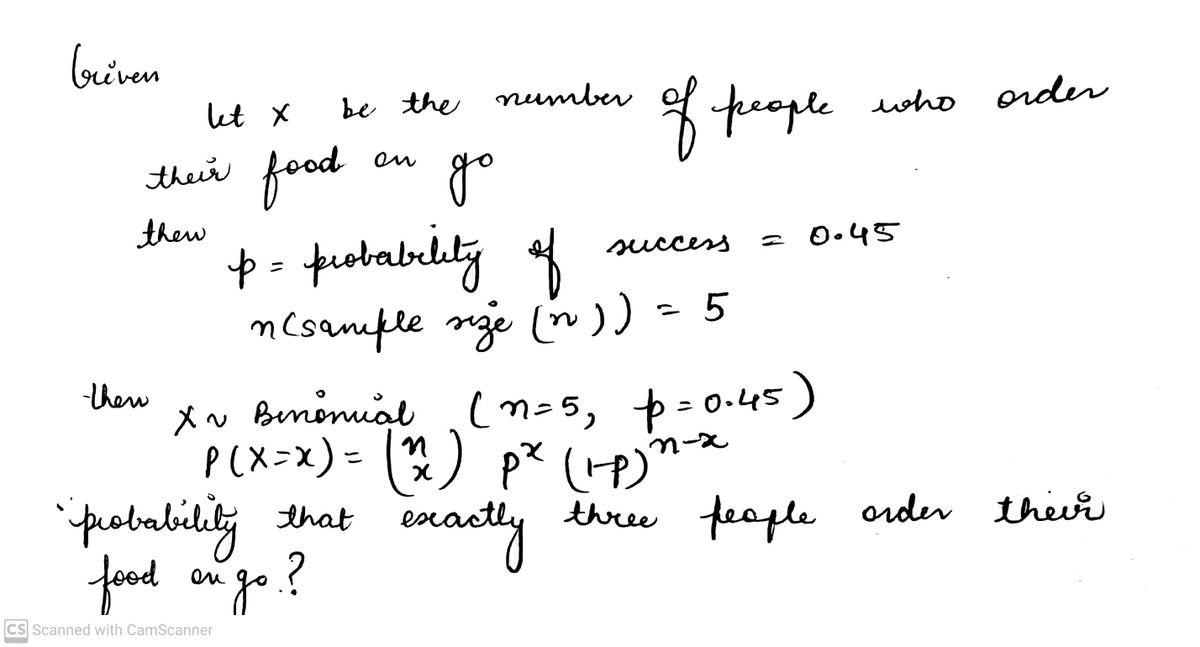 Given
let X be the number of people who order
their food on go
then
p = probability of success = 0.45
n(sample size (n)) = 5
then X ~ Binomial (n=5, p=0.45)
P(X=x) = (n x) p^x (1-p)^n-x
probability that exactly three people order their
food on go.?
CS Scanned with CamScanner